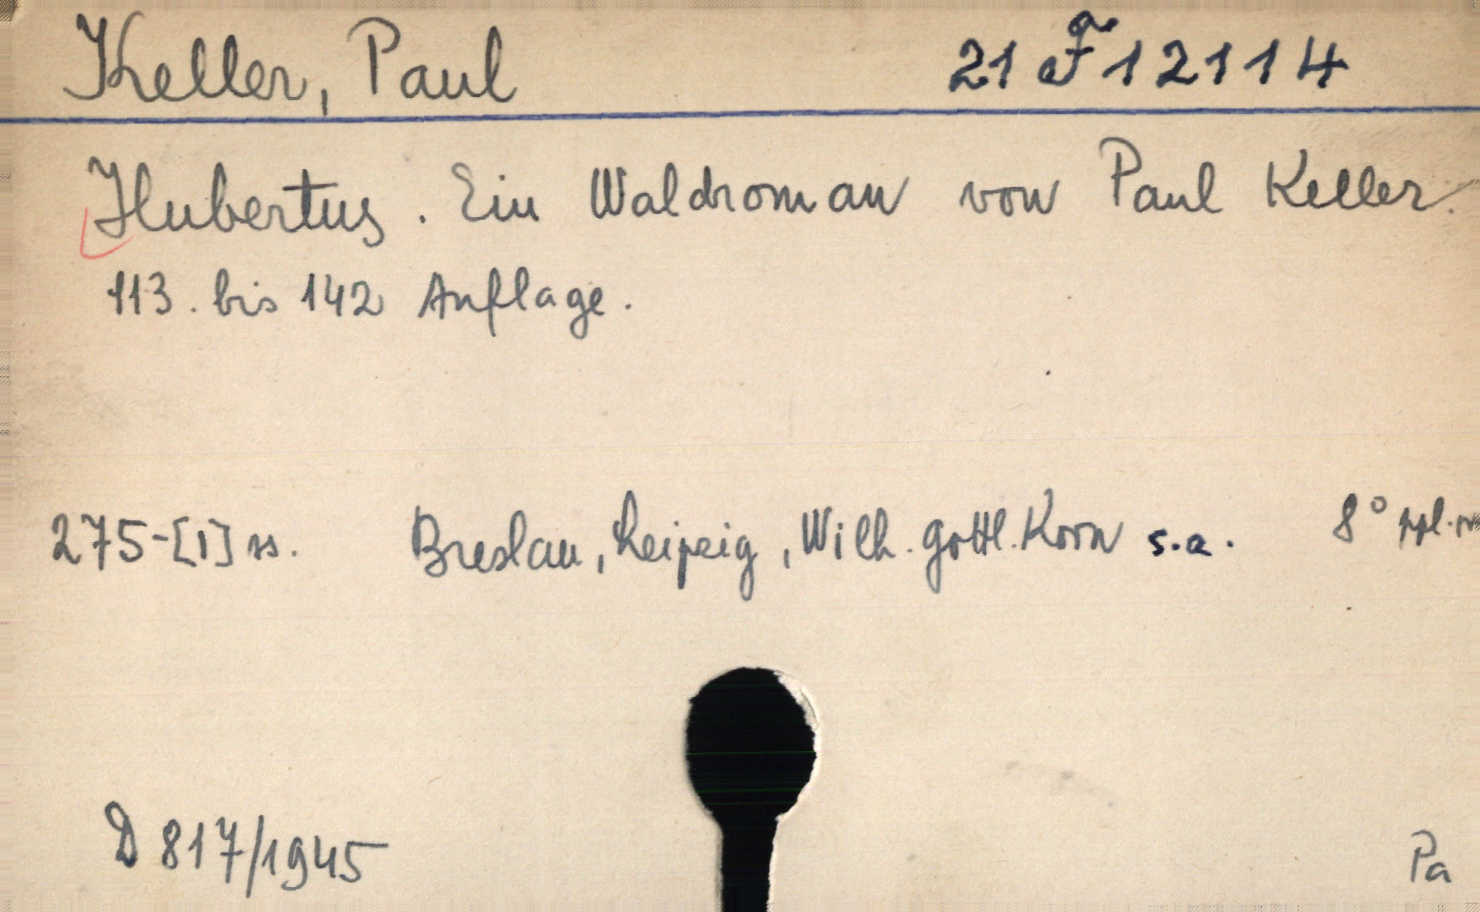 Keller, Paul 21 F 12114
Hubertus. Ein Waldroman von Paul Keller.
113. bis 142 Auflage.
275-[1] ss. Breslau, Leipzig, Wilh. Gottl. Korn s.a. 8°
D 817/1945
Pa